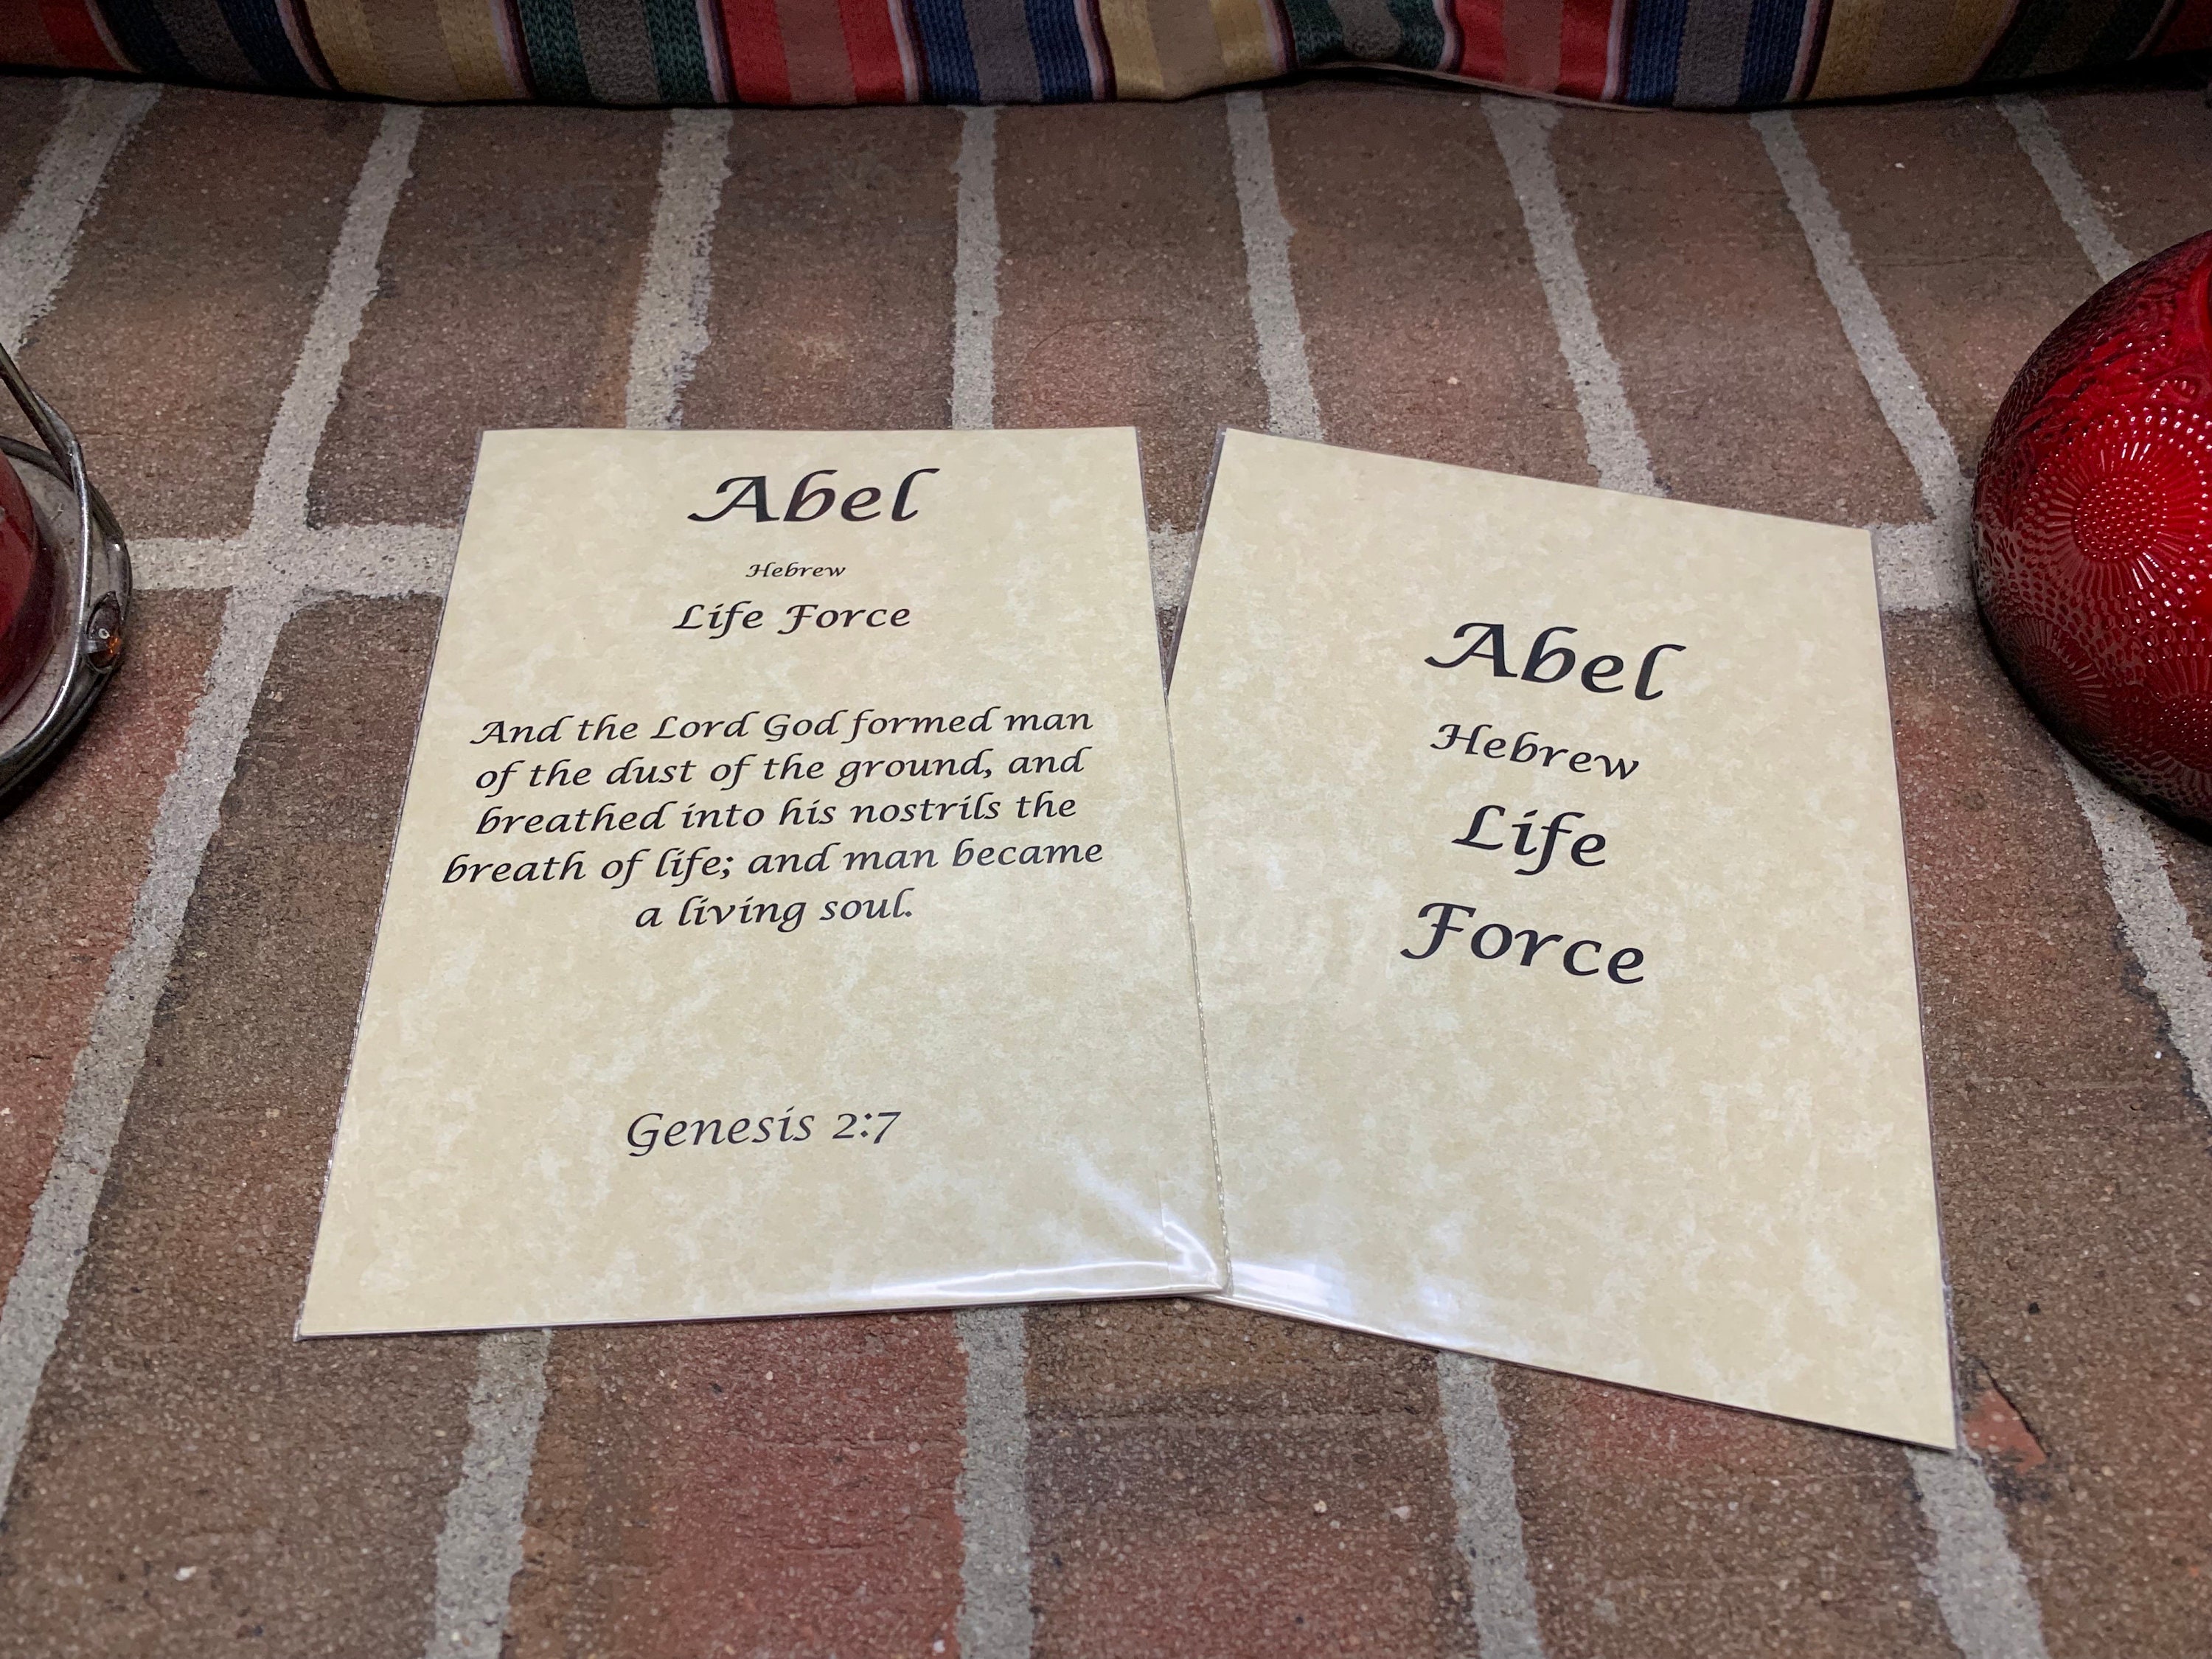 Abel
Hebrew
Life Force
And the Lord God formed man
of the dust of the ground, and
breathed into his nostrils the
breath of life; and man became
a living soul.
Genesis 2:7
Abel
Hebrew
Life
Force